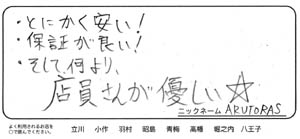 ・とにかく安い!
・保証が良い!
・そして、何より、
店員さんが優しい☆
ニックネーム ARUTORAS
よく利用されるお店を
○で囲んでください。
立川 小作 羽村 昭島 青梅 高幡 堀之内 八王子